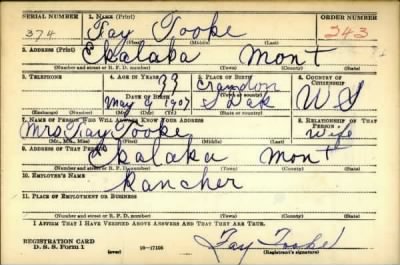 SERIAL NUMBER 1. NAME (Print) ORDER NUMBER
374 Fay Tooke 243
(First) (Middle) (Last)
2. ADDRESS (Print)
Ekalaka Mont
(Number and street or R. F. D. number) (Town) (County) (State)
3. TELEPHONE 4. AGE IN YEARS 5. PLACE OF BIRTH 6. COUNTRY OF CITIZENSHIP
33 Crandon
DATE OF BIRTH (Town or county)
May 9 1907 S Dak U S
(Exchange) (Number) (Mo.) (Day) (Yr.) (State or country)
7. NAME OF PERSON WHO WILL ALWAYS KNOW YOUR ADDRESS 8. RELATIONSHIP OF THAT PERSON
Mrs Fay Tooke Wife
(Mr., Mrs., Miss) (First) (Middle) (Last)
9. ADDRESS OF THAT PERSON
Ekalaka Mont
(Number and street or R. F. D. number) (Town) (County) (State)
10. EMPLOYER'S NAME
Rancher
11. PLACE OF EMPLOYMENT OR BUSINESS
(Number and street or R. F. D. number) (Town) (County) (State)
I AFFIRM THAT I HAVE VERIFIED ABOVE ANSWERS AND THAT THEY ARE TRUE.
REGISTRATION CARD
D. S. S. Form 1 16—17105 Fay Tooke
(Registrant's signature)